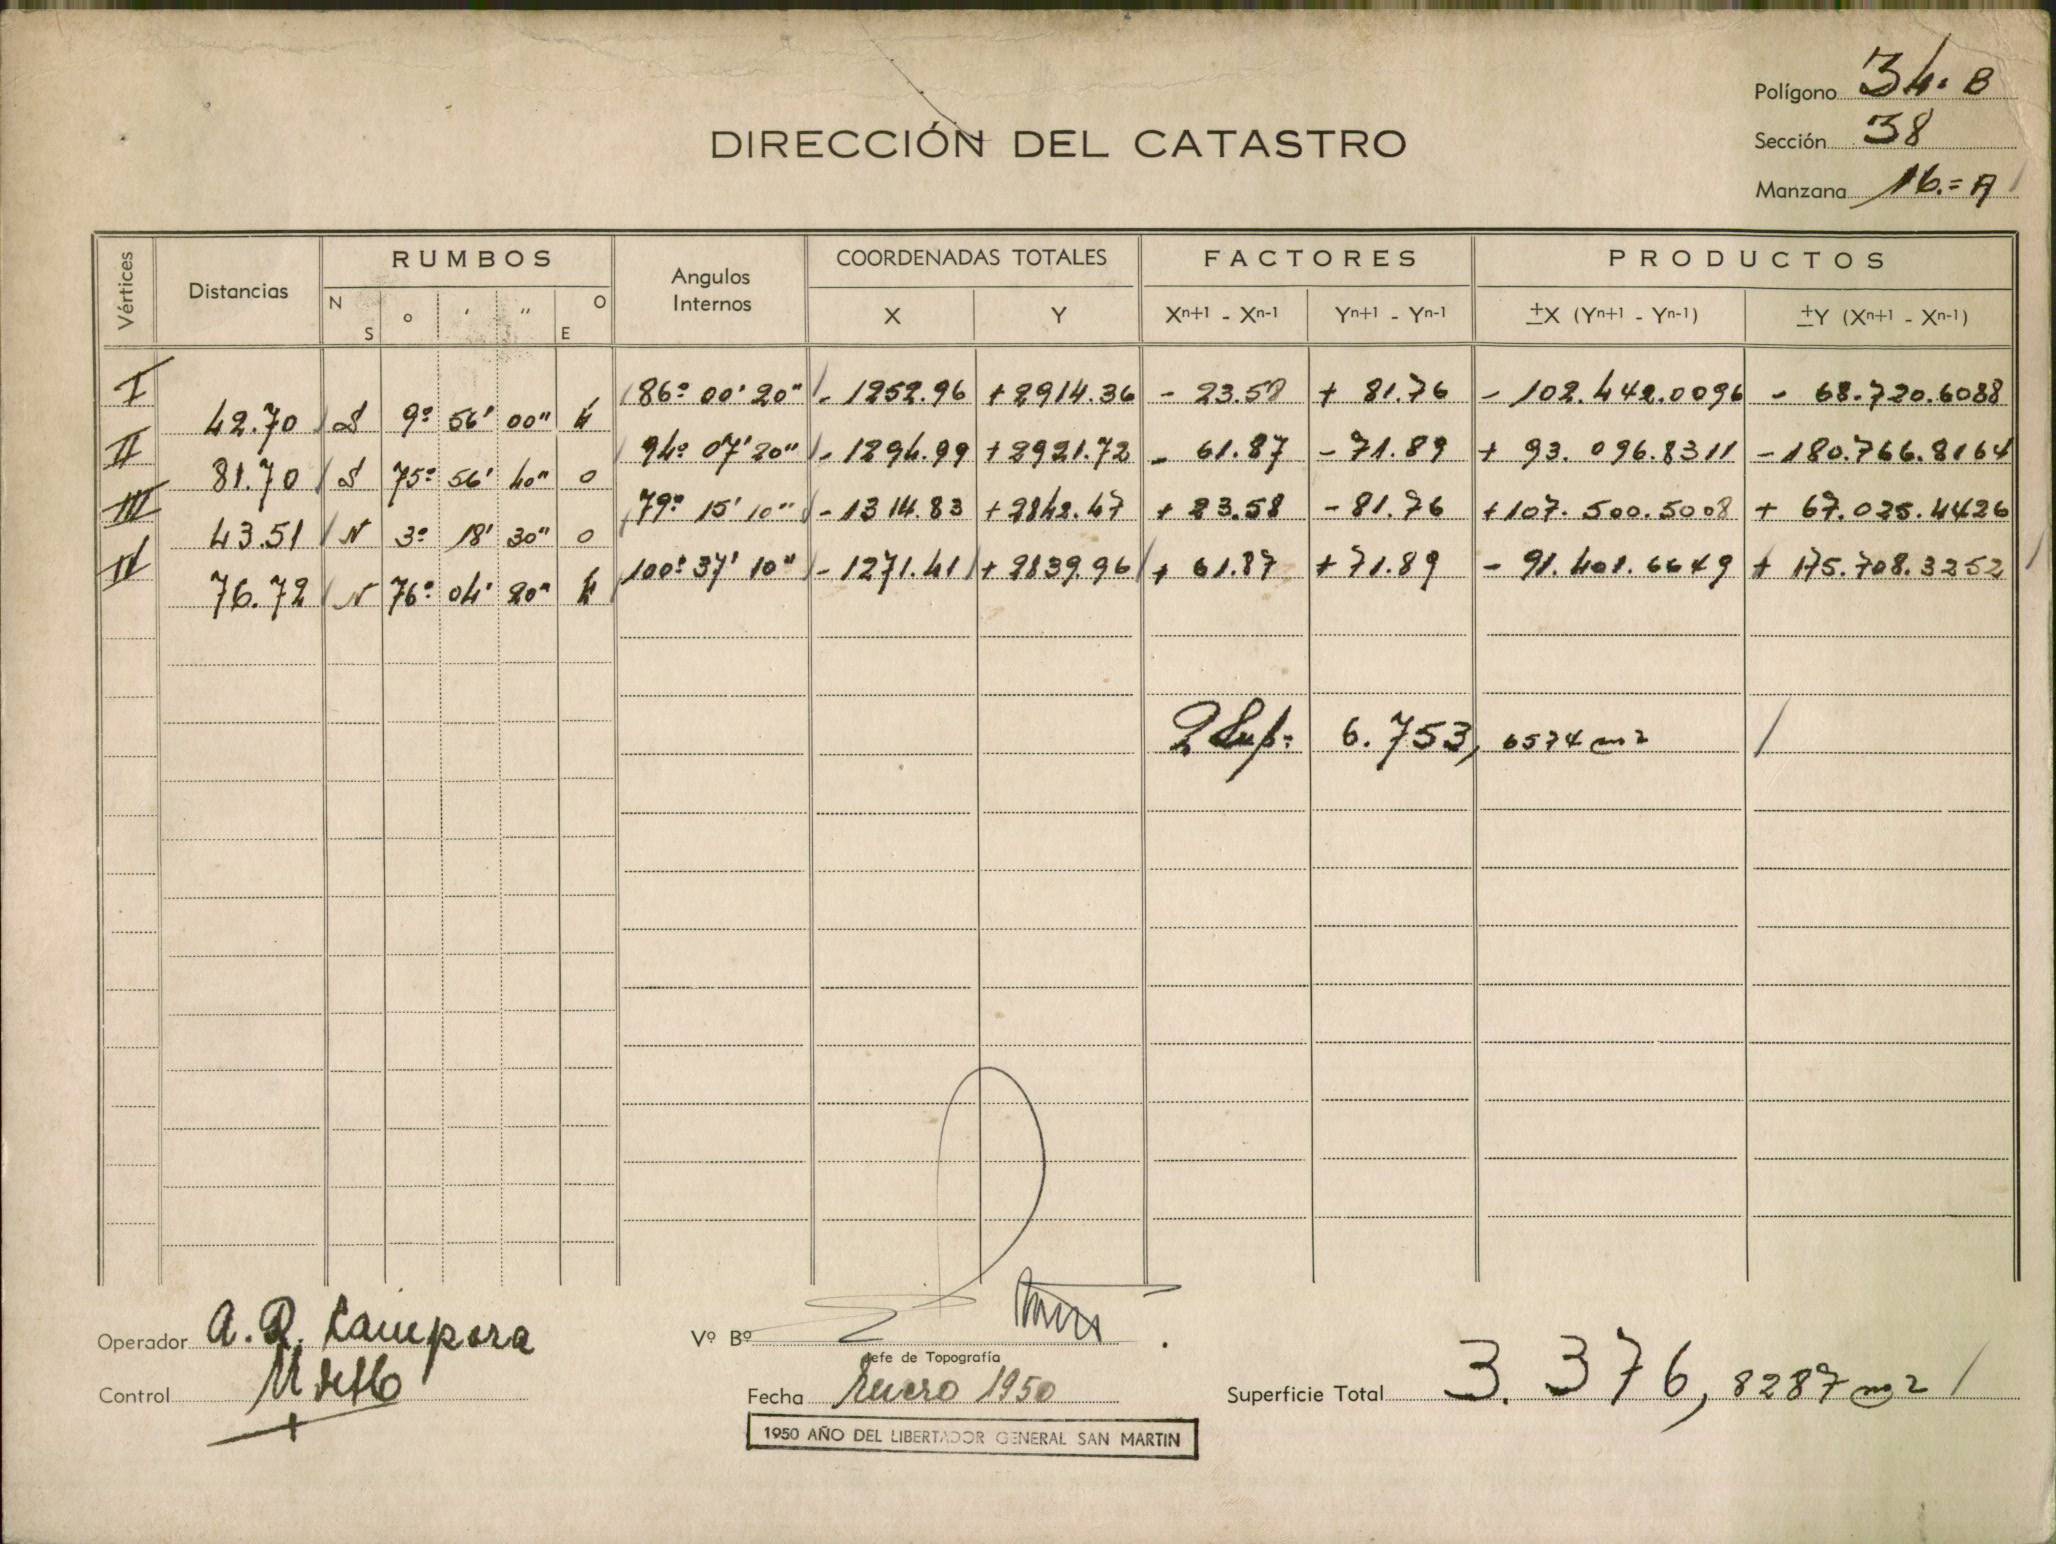 Polígono 34. B
DIRECCIÓN DEL CATASTRO
Sección 38
Manzana 16.= A
Vértices
Distancias
RUMBOS
N S
o ' "
O E
Angulos Internos
COORDENADAS TOTALES
X Y
FACTORES
Xn+1 - Xn-1 Yn+1 - Yn-1
PRODUCTOS
±X (Yn+1 - Yn-1) ±Y (Xn+1 - Xn-1)
I 86º 00' 20" - 1252.96 + 2914.36 - 23.58 + 81.76 - 102.442.0096 - 68.720.6088
42.70 S 9º 56' 00" E
II 94º 07' 20" - 1294.99 + 2921.72 - 61.87 - 71.89 + 93.096.8311 - 180.766.8164
81.70 S 75º 56' 40" O
III 79º 15' 10" - 1314.83 + 2842.47 + 23.58 - 81.76 + 107.500.5008 + 67.025.4426
43.51 N 3º 18' 30" O
IV 100º 37' 10" - 1271.41 + 2839.96 + 61.87 + 71.89 - 91.401.6649 + 175.708.3252
76.72 N 76º 04' 20" E
2 Sup: 6.753, 6574 m2
Operador A. R. Campora
Vº Bº
Jefe de Topografía
Control
Fecha Enero 1950
Superficie Total 3.376, 8287 m2
1950 AÑO DEL LIBERTADOR GENERAL SAN MARTIN